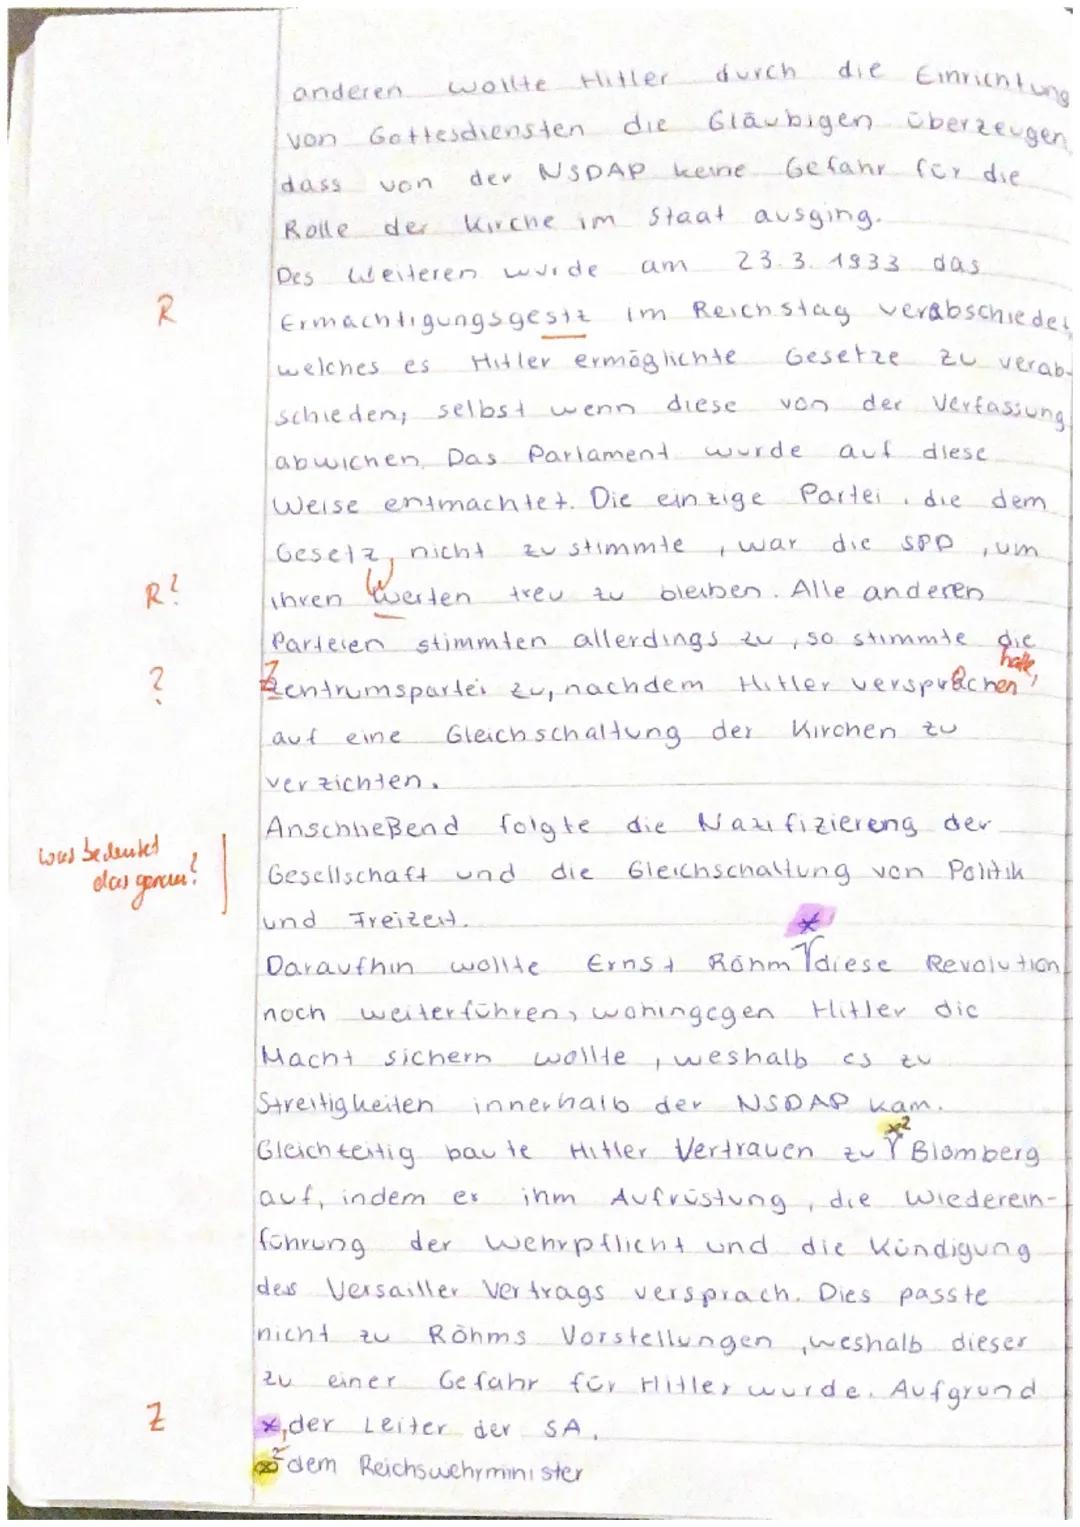 anderen wollte Hitler durch die Einrichtung
von Gottesdiensten die Gläubigen überzeugen,
dass von der NSDAP keine Gefahr für die
Rolle der Kirche im Staat ausging.
Des Weiteren wurde am 23.3.1933 das
R
Ermächtigungsgestz im Reichstag verabschiedet,
welches es Hitler ermöglichte Gesetze zu verab-
schieden, selbst wenn diese von der Verfassung
abwichen. Das Parlament wurde auf diese
Weise entmachtet. Die einzige Partei, die dem
Gesetz, nicht zustimmte, war die SPD, um
R? ihren Werten treu zu bleiben. Alle anderen
Parteien stimmten allerdings zu, so stimmte die
? Zentrumspartei zu, nachdem Hitler versprochen hatte,
auf eine Gleichschaltung der Kirchen zu
verzichten.
Anschließend folgte die Nazifiziereng der
was bedeutet das genau?
Gesellschaft und die Gleichschaltung von Politik
und Freizeit.
*
Daraufhin wollte Ernst Röhm diese Revolution
noch weiterführen, wohingegen Hitler die
Macht sichern wollte, weshalb es zu
Streitigkeiten innerhalb der NSDAP kam.
x2
Gleichzeitig baute Hitler Vertrauen zu Blomberg
auf, indem er ihm Aufrüstung, die Wiederein-
führung der Wehrpflicht und die Kündigung
des Versailler Vertrags versprach. Dies passte
nicht zu Röhms Vorstellungen, weshalb dieser
zu einer Gefahr für Hitler wurde. Aufgrund
Z *, der Leiter der SA,
x2 dem Reichswehrminister